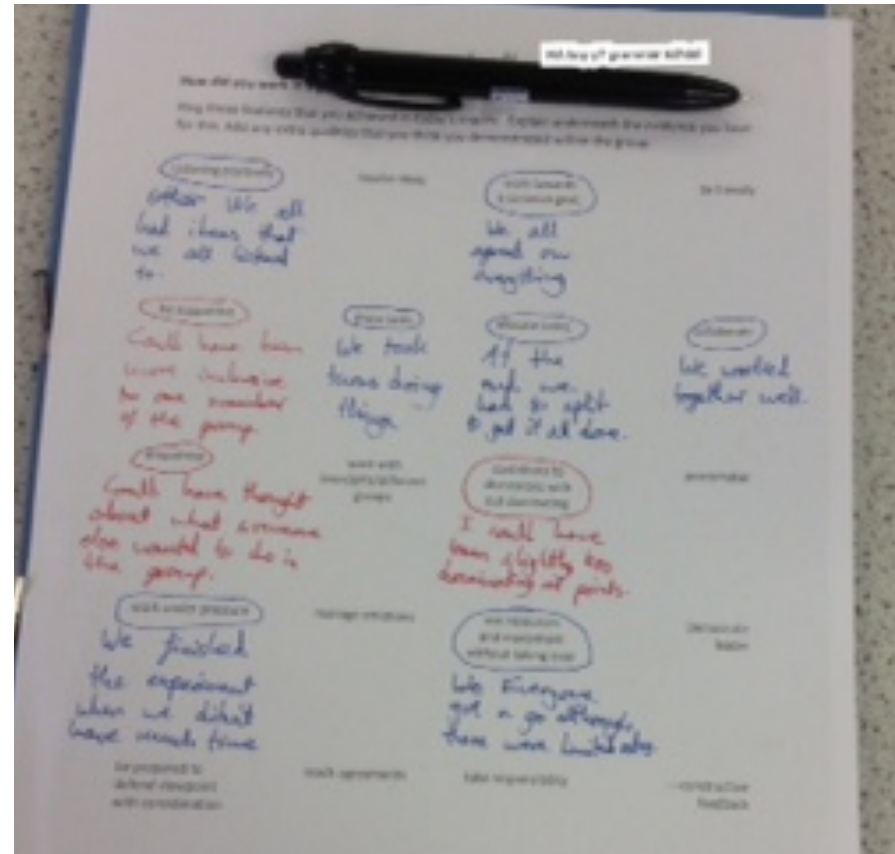 How did you work
Ring those features that you achieved in today's enquiry. Explain underneath the evidence you have
for this. Add any extra qualities that you think you demonstrated within the group
Listening positively
other We all
had ideas that
we all listend
to.
resolve ideas
work towards
a common goal
We all
agreed on
everything
be friendly
be supportive
Could have been
more inclusive
to one member
of the group
share tasks
We took
turns doing
things
allocate roles
At the
end we
had to split
to get it all done.
collaborate
We worked
together well.
Could have thought
about what someone
else wanted to do in
the group.
work with
friends/different
groups
contribute to
discussions with
out dominating
I could have
been slightly too
dominating at points.
work under pressure
We finished
the experiment
when we didn't
have much time
manage emotions
use resources
and equipment
without taking over
We Everyone
got a go although
there were
Democratic
leader
be prepared to
defend viewpoint
with consideration
reach agreements
take responsibility
constructive
feedback